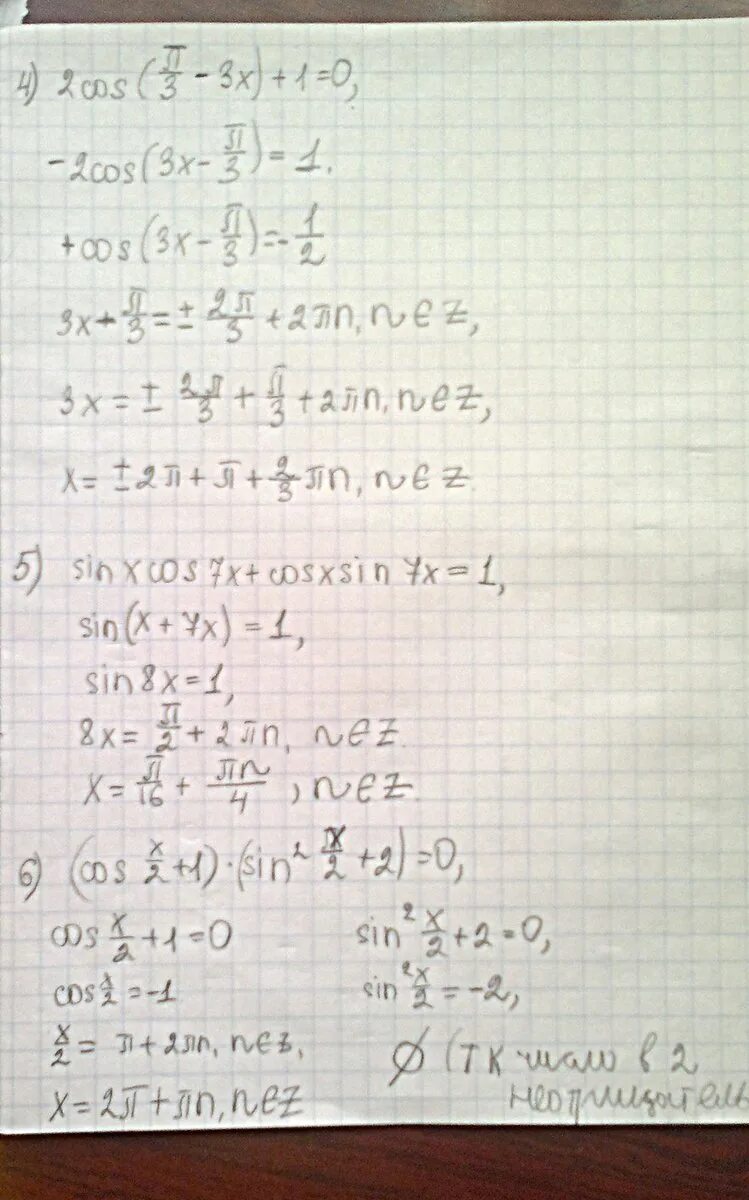 4) 2cos(π/3 - 3x) + 1 = 0,
-2cos(3x - π/3) = 1.
+cos(3x - π/3) = -1/2
3x - π/3 = ± 2π/3 + 2πn, n ∈ Z,
3x = ± 2π/3 + π/3 + 2πn, n ∈ Z,
x = ±2π + π + 2/3 πn, n ∈ Z
5) sin x cos 7x + cos x sin 7x = 1,
sin(x + 7x) = 1,
sin 8x = 1,
8x = π/2 + 2πn, n ∈ Z.
x = π/16 + πn/4, n ∈ Z.
6) (cos x/2 + 1)·(sin² x/2 + 2) = 0,
cos x/2 + 1 = 0
cos x/2 = -1
x/2 = π + 2πn, n ∈ Z,
x = 2π + πn, n ∈ Z
sin² x/2 + 2 = 0,
sin² x/2 = -2,
∅ (ТК число в 2
неотрицатель